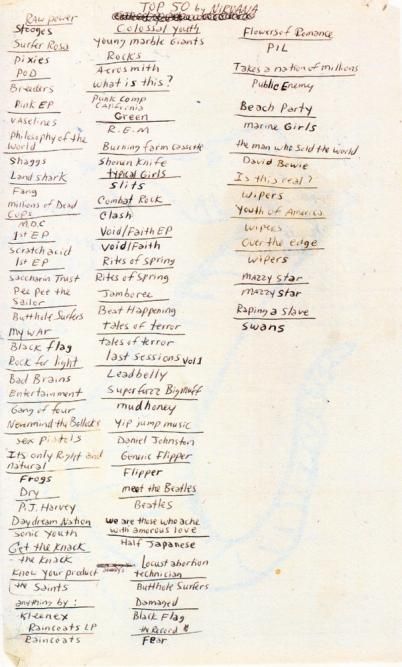 TOP 50 by NIRVANA
Raw power
Stooges
Surfer Rosa
Pixies
POD
Breeders
Pink EP
vaselines
Philosophy of the
World
Shaggs
Land shark
Fang
millions of Dead
Cops
M.D.C
1st EP
Scratch acid
1st EP
Saccharin Trust
Pee pee the
Sailor
Butthole Surfers
my war
Black flag
Rock for light
Bad Brains
Entertainment
Gang of four
Nevermind the Bollocks
sex pistols
Its only Right and
natural
Frogs
Dry
P.J. Harvey
Daydream Nation
Sonic Youth
Get the Knack
the Knack
Know your product
the Saints
anything by:
Kleenex
Raincoats LP
Raincoats
Colossal youth
Young marble Giants
Rocks
Aerosmith
What is this?
Punk comp
California
Green
R.E.M
Burning farm cassette
Shonen Knife
typical Girls
Slits
Combat Rock
Clash
Void/Faith EP
Void/Faith
Rites of spring
Rites of Spring
Jamboree
Beat Happening
tales of terror
tales of terror
last sessions vol 1
Leadbelly
Superfuzz Bigmuff
mudhoney
Yip jump music
Daniel Johnston
Generic Flipper
Flipper
meet the Beatles
Beatles
we are those who ache
with amorous love
Half Japanese
Locust abortion
technician
Butthole Surfers
Damaged
Black Flag
the Record
Fear
Flowers of Romance
PiL
Takes a nation of millions
Public Enemy
Beach Party
marine Girls
the man who sold the world
David Bowie
Is this real?
Wipers
Youth of America
Wipers
Over the edge
Wipers
mazzy star
mazzy star
Raping a slave
Swans